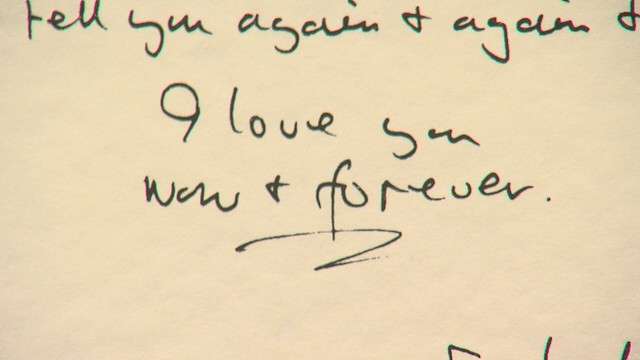 tell you again + again +
I love you
now + forever.